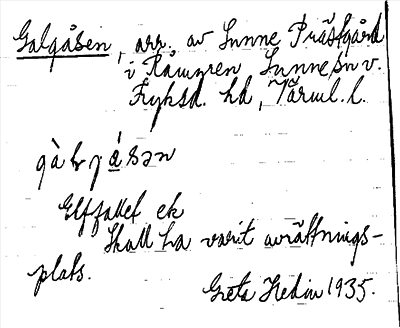 Galgåsen, arr. av Sunne Prästgård
i Råmyren Sunne sn v.
Fryksd. hd, Värml. l.
Elffallet ek
Skall ha varit avrättnings-
plats.
Greta Hedin 1935.